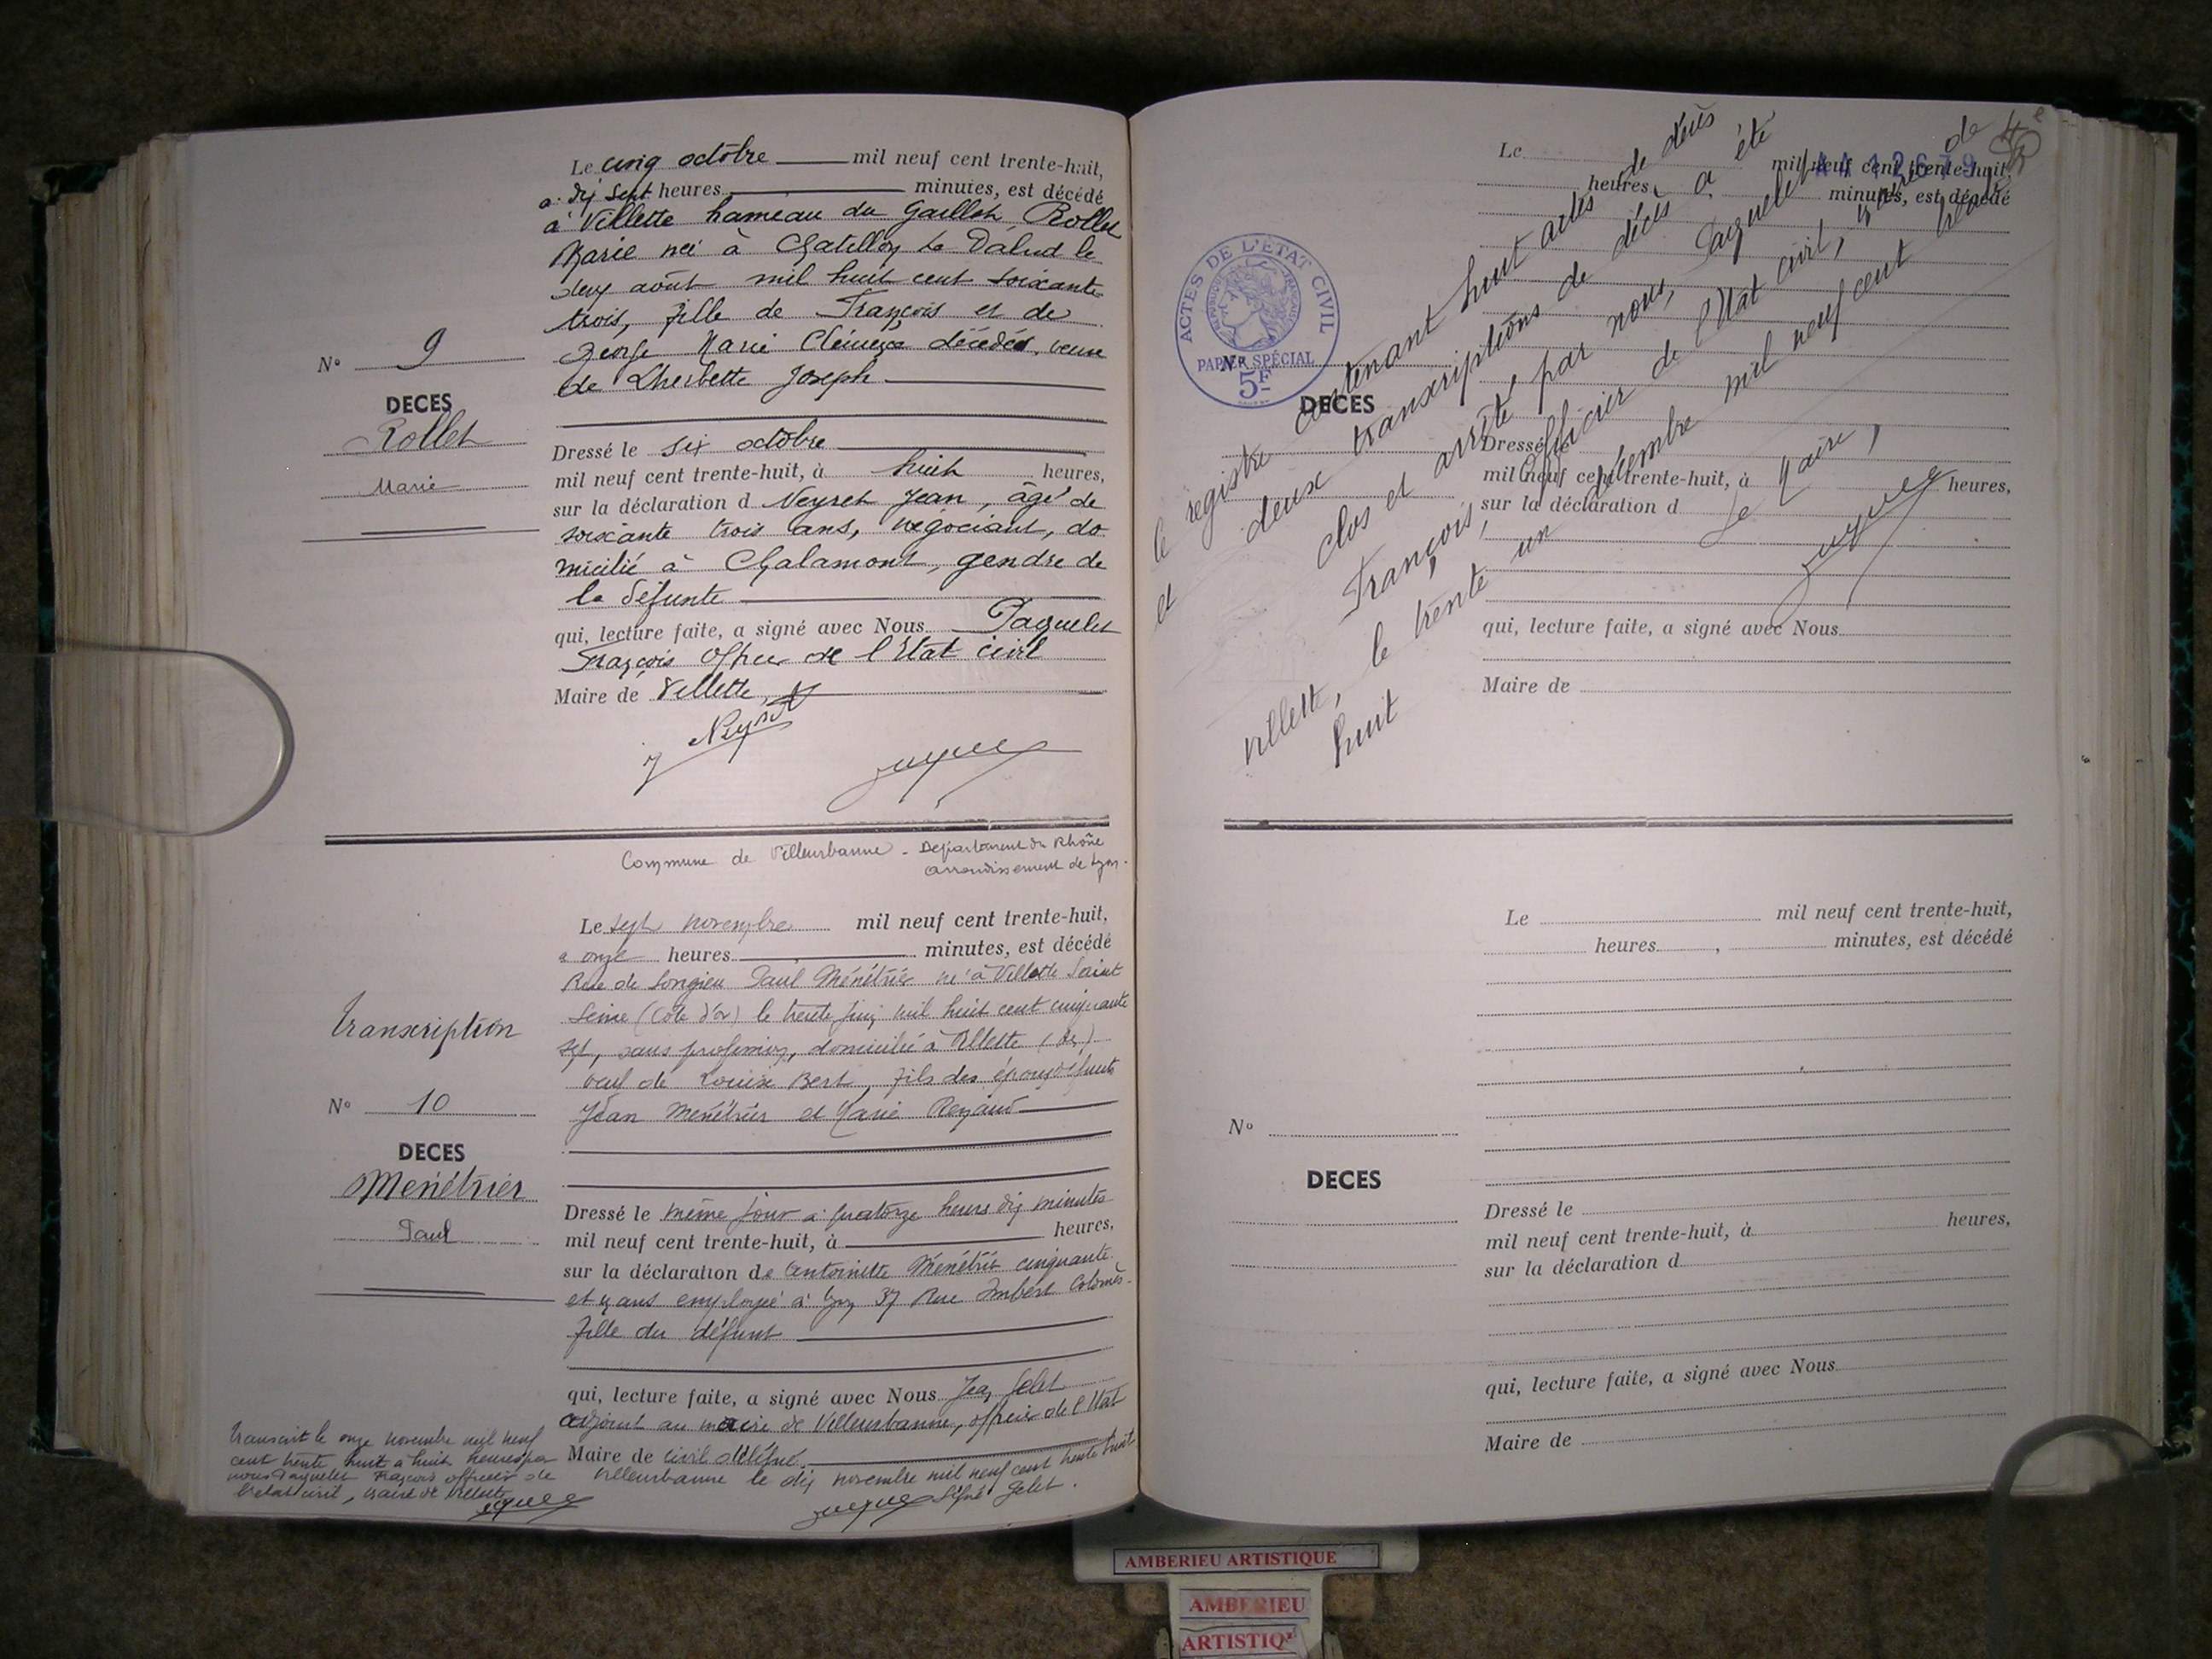 Le cinq octobre mil neuf cent trente-huit,
à dix sept heures minutes, est décédé
à Villette hameau du Gaillot Rollet
Marie née à Chatillon la Palud le
deux août mil huit cent soixante
trois, fille de François et de
George Marie Clémence décédés, veuve
de Lherbette Joseph
N° 9
DECES
Rollet
Marie
Dressé le six octobre
mil neuf cent trente-huit, à huit heures,
sur la déclaration d Neyret Jean, âgé de
soixante trois ans, négociant, do
micilié à Chalamont, gendre de
la défunte
qui, lecture faite, a signé avec Nous Paquelet
François officier de l'Etat civil
Maire de Villette
J Neyret
Commune de Villeurbanne - Département du Rhône
arrondissement de Lyon.
Le sept novembre mil neuf cent trente-huit,
à onze heures minutes, est décédé
Rue de Longieu Paul Ménétrier né à Villotte Saint
Seine (Côte d'or) le trente juin mil huit cent cinquante
sept, sans profession, domicilié à Villette
veuf de Louise Bert, fils des époux défunts
Jean Ménétrier et Marie Renaud
transcription
N° 10
DECES
Ménétrier
Paul
Dressé le même jour à quatorze heures dix minutes
mil neuf cent trente-huit, à heures,
sur la déclaration de Antoinette Ménétrier cinquante
et un ans employée à Lyon 37 Rue Imbert Colomès
fille du défunt
qui, lecture faite, a signé avec Nous Jean Gelet
adjoint au maire de Villeurbanne, officier de l'Etat
Maire de civil délégué.
Villeurbanne le dix novembre mil neuf cent trente huit
Signé Gelet.
transcrit le onze novembre mil neuf
cent trente huit à huit heures par
nous Paquelet François officier de
l'état civil, maire de Villette
Le mil neuf cent trente-huit,
heures, minutes, est décédé
ACTES DE L'ÉTAT CIVIL
RÉPUBLIQUE FRANÇAISE
PAPIER SPÉCIAL
5F
N°
DECES
le registre contenant huit actes de décès
et deux transcriptions de décès a été
clos et arrêté par nous, Paquelet
François, officier de l'Etat civil, maire de
Villette, le trente un décembre mil neuf cent trente
huit
Le Maire,
Dressé le
mil neuf cent trente-huit, à heures,
sur la déclaration d
qui, lecture faite, a signé avec Nous
Maire de
Le mil neuf cent trente-huit,
heures, minutes, est décédé
N°
DECES
Dressé le
mil neuf cent trente-huit, à heures,
sur la déclaration d
qui, lecture faite, a signé avec Nous
Maire de
AMBERIEU ARTISTIQUE
AMBERIEU
ARTISTIQ